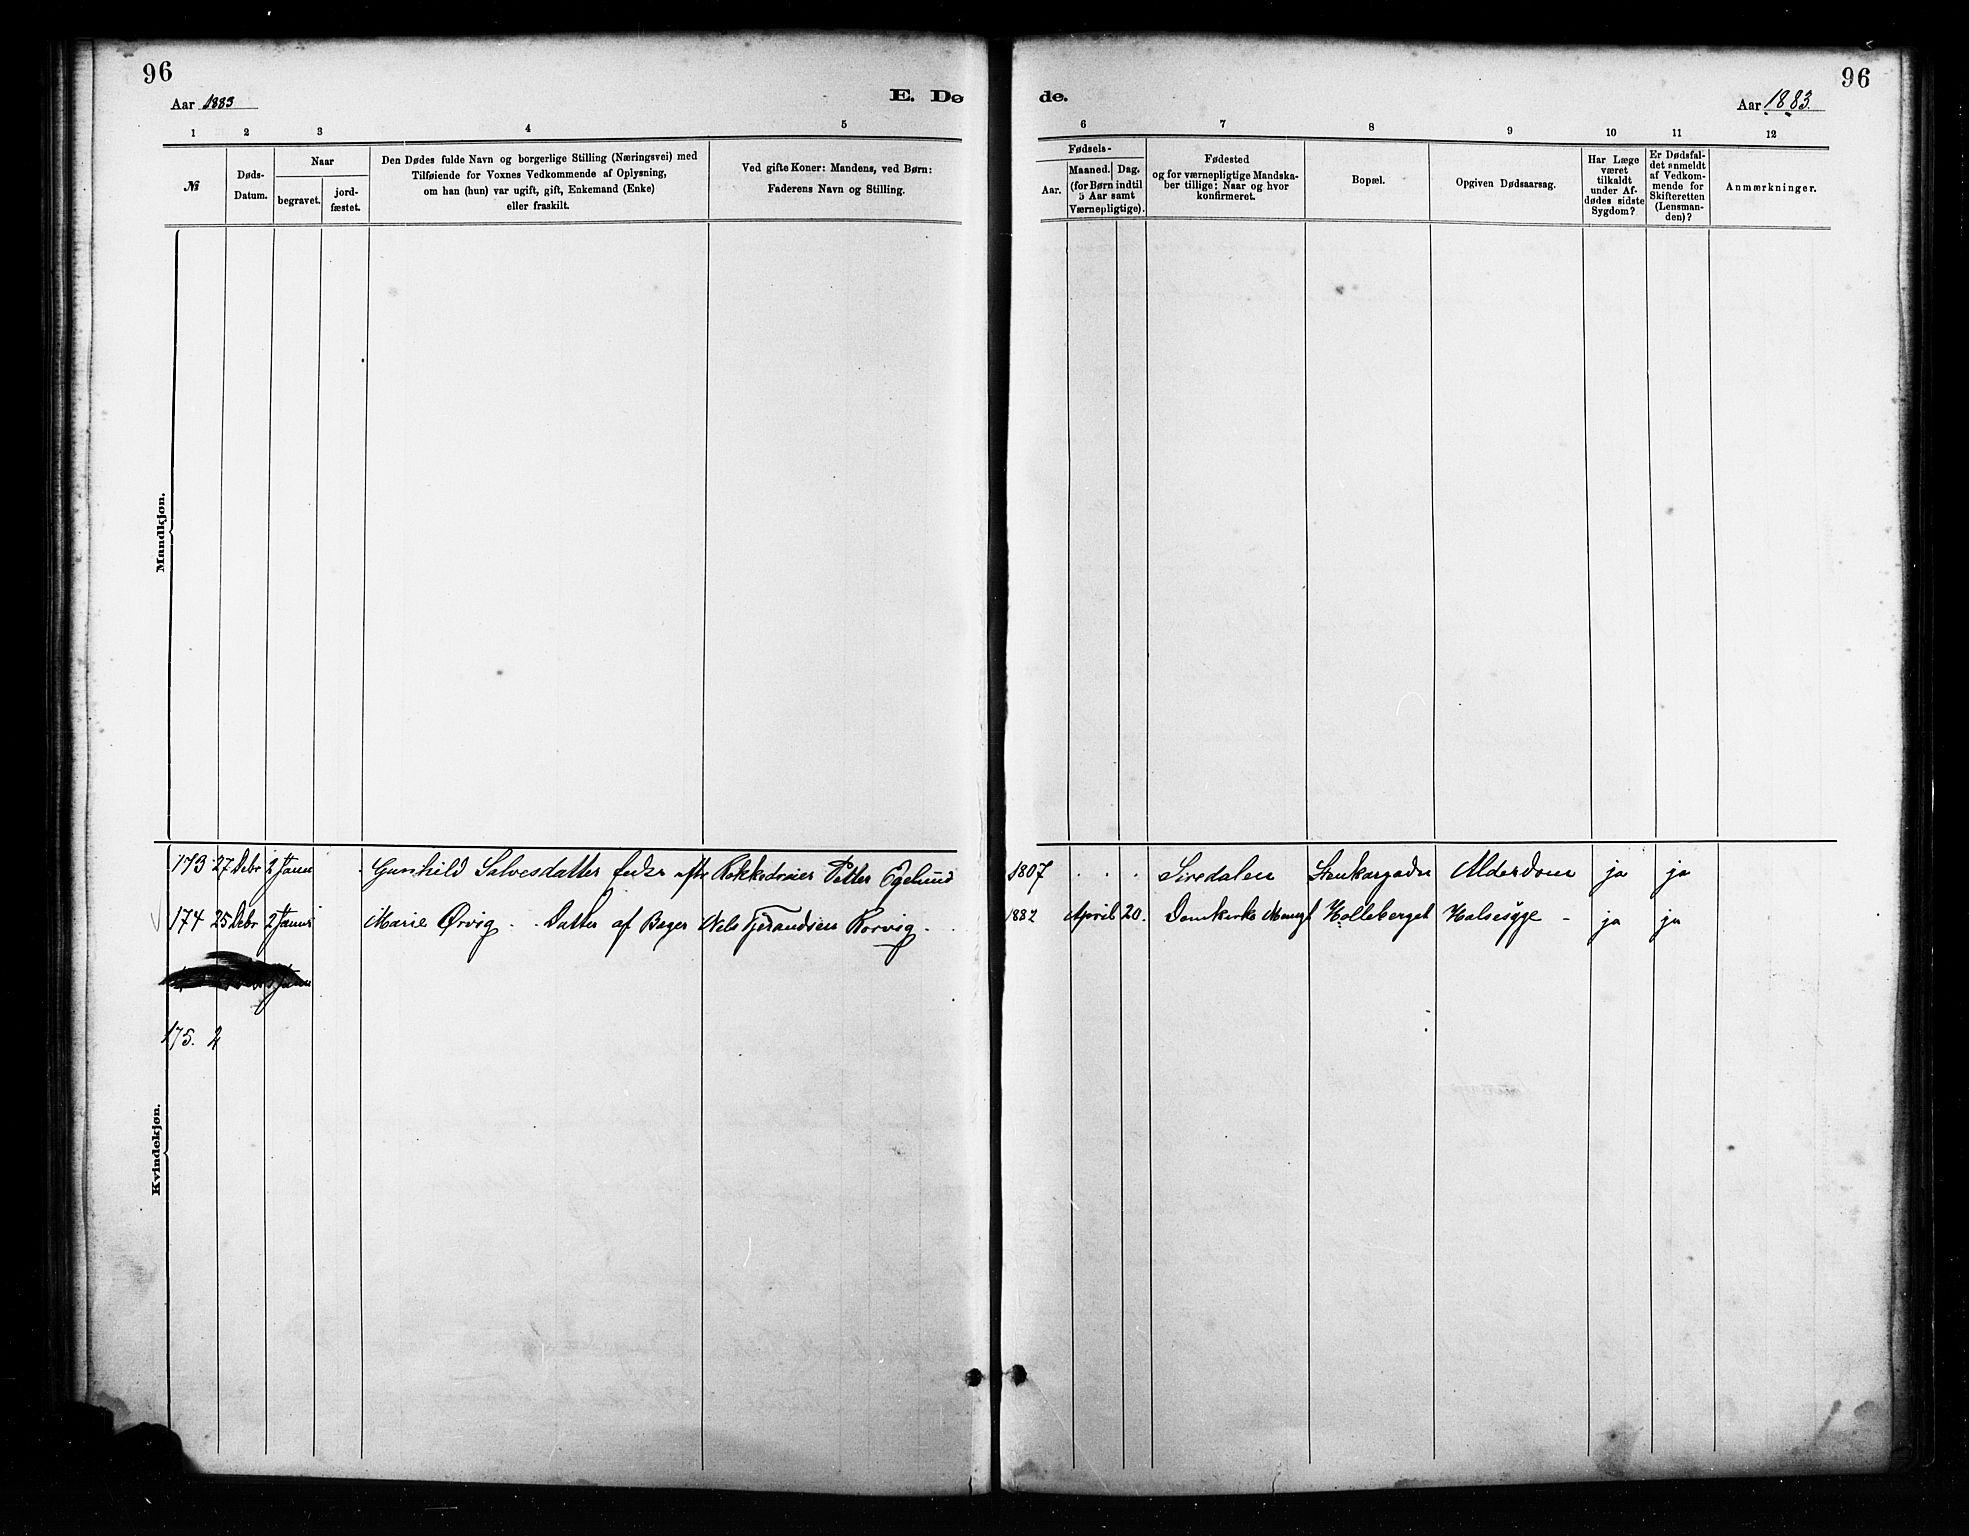 96
96
Aar 1883
E. Dø
de.
Aar 1883.
1 2 3 4 5 6 7 8 9 10 11 12
№
Døds-
Datum.
Naar
begravet.
jord-
fæstet.
Den Dødes fulde Navn og borgerlige Stilling (Næringsvei) med
Tilføiende for Voxnes Vedkommende af Oplysning,
om han (hun) var ugift, gift, Enkemand (Enke)
eller fraskilt.
Ved gifte Koner: Mandens, ved Børn:
Faderens Navn og Stilling.
Fødsels-
Aar.
Maaned. Dag.
(for Børn indtil
5 Aar samt
Værnepligtige).
Fødested
og for værnepligtige Mandska-
ber tillige: Naar og hvor
konfirmeret.
Bopæl.
Opgiven Dødsaarsag.
Har Læge
været
tilkaldt
under Af-
dødes sidste
Sygdom?
Er Dødsfal-
det anmeldt
af Vedkom-
mende for
Skifteretten
(Lensman-
den)?
Anmærkninger.
Mandkjøn.
173 27 Debr 2 Janu Gunhild Salvesdatter efter Petter Egelund 1807 Siredalen Alderdom ja ja
174 25 Debr 2 Janu Marie Ørvig Datter af Bager Nels Tjerandsen Rorvig. 1882 April 20. Domkirke Menigh Holleberget Halsesyge - ja ja
175. 2
Kvindekjøn.